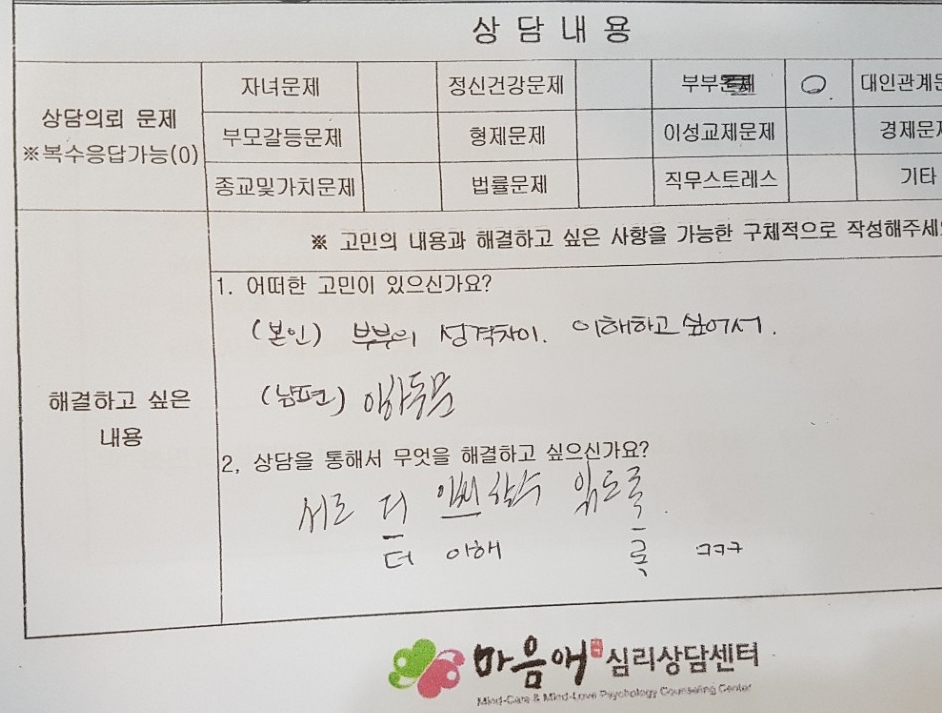 상담내용
상담의뢰 문제
※복수응답가능(0)
자녀문제 정신건강문제 부부문제 O 대인관계문
부모갈등문제 형제문제 이성교제문제 경제문제
종교및가치문제 법률문제 직무스트레스 기타
해결하고 싶은
내용
※ 고민의 내용과 해결하고 싶은 사항을 가능한 구체적으로 작성해주세요
1. 어떠한 고민이 있으신가요?
(본인) 부부의 성격차이. 이해하고 싶어서.
(남편) 이하동문
2, 상담을 통해서 무엇을 해결하고 싶으신가요?
서로 더 이해 할수 있도록.
더 이해 록 ㅋㅋㅋ
마음애 심리상담센터
Mind-Care & Mind-Love Psychology Counseling Center